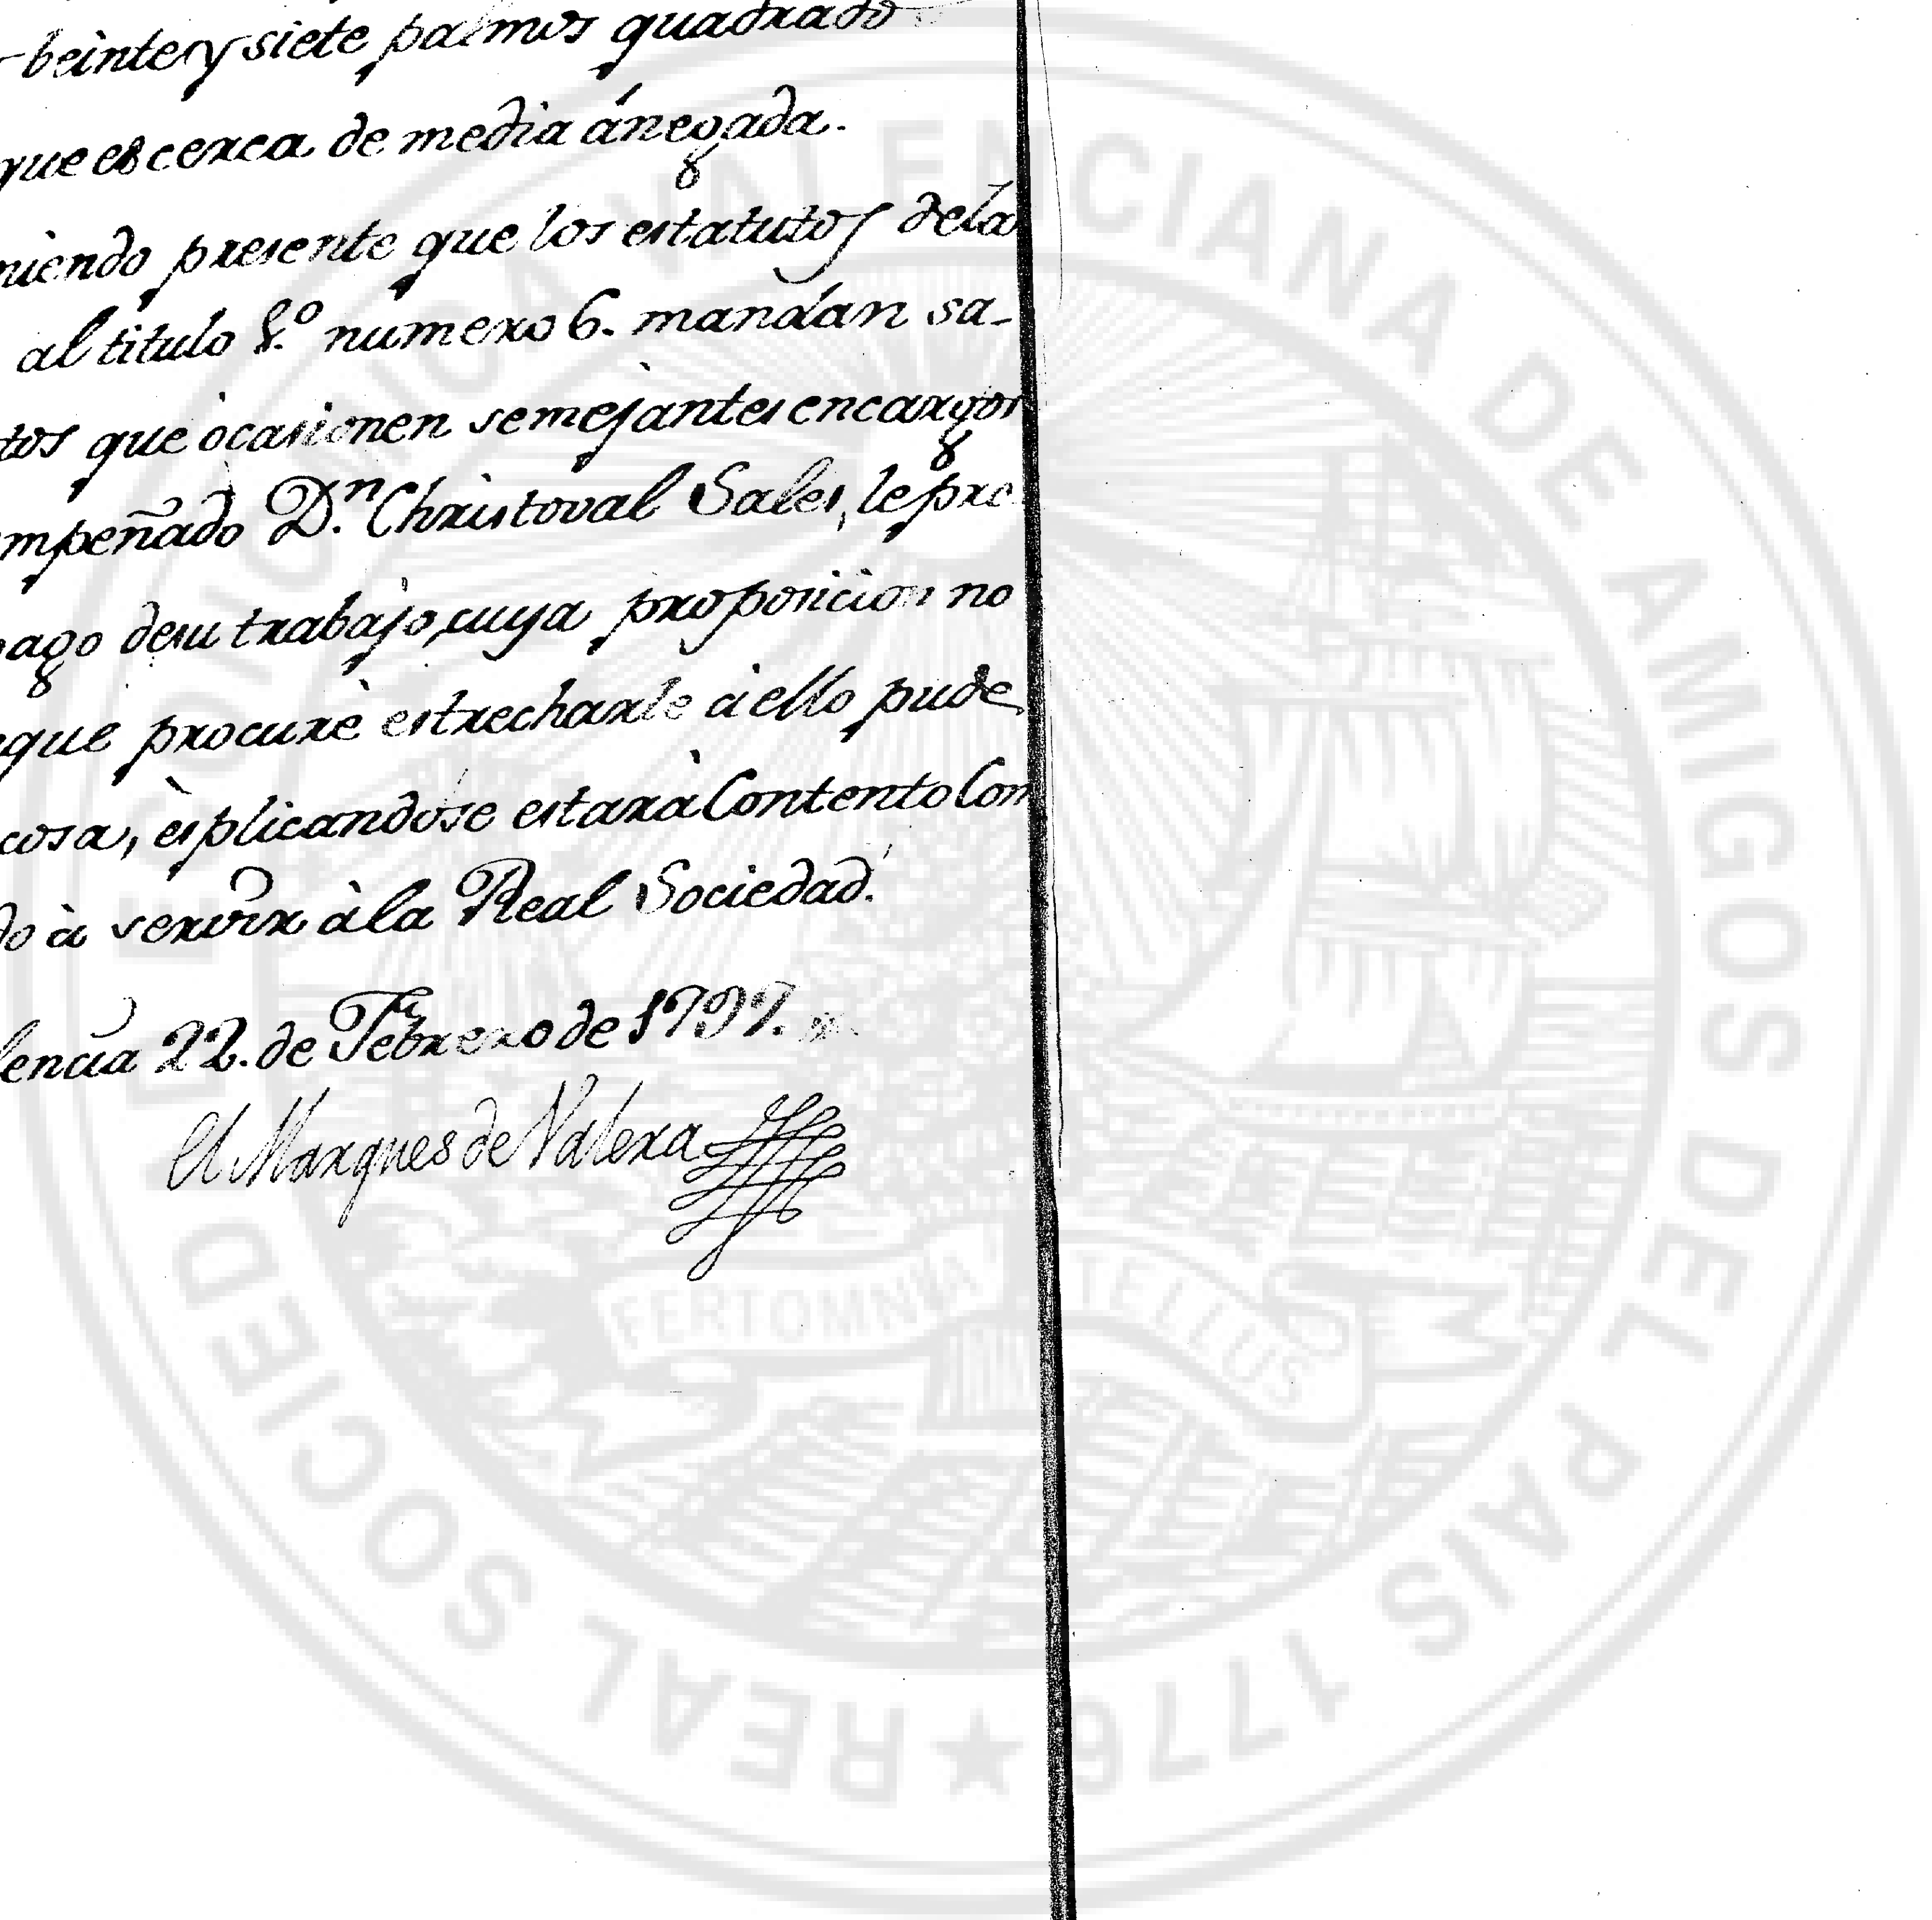 beinte y siete palmos quadrado
que es cerca de media ánegada.
niendo presente que los estatutos dela
al titulo 8.º numero 6. mandan sa-
tos que ocasionen semejantes encargos
mpeñado D.n Christoval Sales, le pre
ago desu trabajo, cuya proposicion no
que procurè estrecharle à ello pude
cosa, esplicandose estarà Contento Con
do à servir à la Real Sociedad.
lencia 22. de Febrero de 1797.
El Marques de Valera
REAL SOCIEDAD ECONOMICA VALENCIANA DE AMIGOS DEL PAIS 1776
FERT OMNIA TELLUS